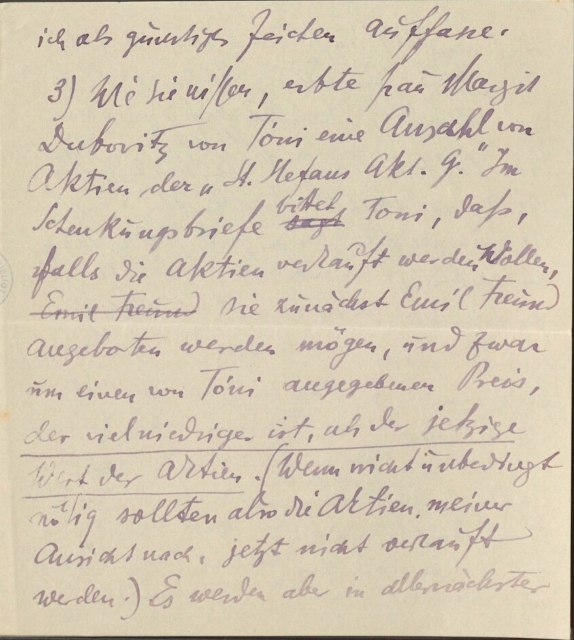 ich als günstiges Zeichen auffasse.
3) Wie Sie wissen, erbte Frau Margit
Dubovitz von Toni eine Anzahl von
Aktien der „St. Stefans Akt. G." Im
Schenkungsbriefe sagt bittet Toni, daß,
falls die Aktien verkauft werden wollen,
Emil Freund sie zunächst Emil Freund
angeboten werden mögen, und zwar
um einen von Toni angegebenen Preis,
der viel niedriger ist, als der jetzige
Wert der Aktien. (Wenn nicht unbedingt
nötig sollten also die Aktien, meiner
Ansicht nach, jetzt nicht verkauft
werden.) Es werden aber in allernächster